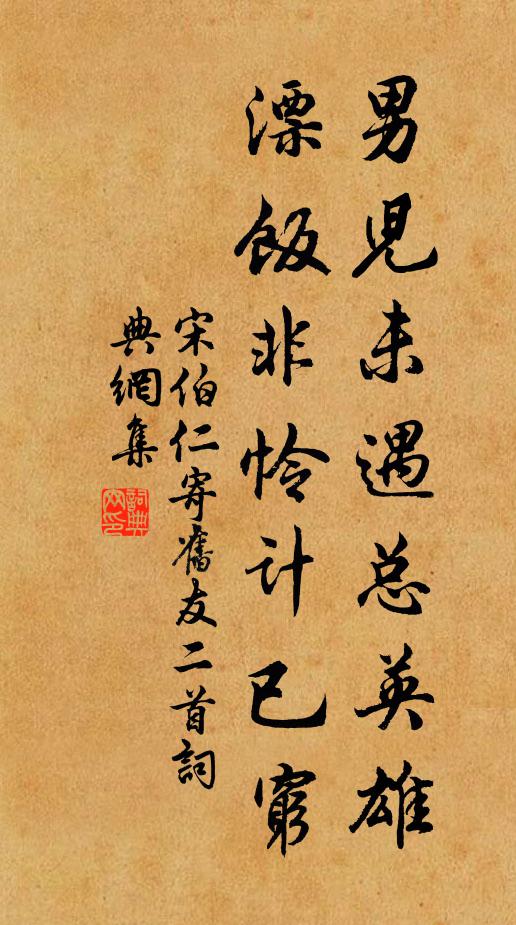 男兒未遇总英雄
漂飯非怜计已窮
宋伯仁寄舊友二首詞
典網集
詞典
网印